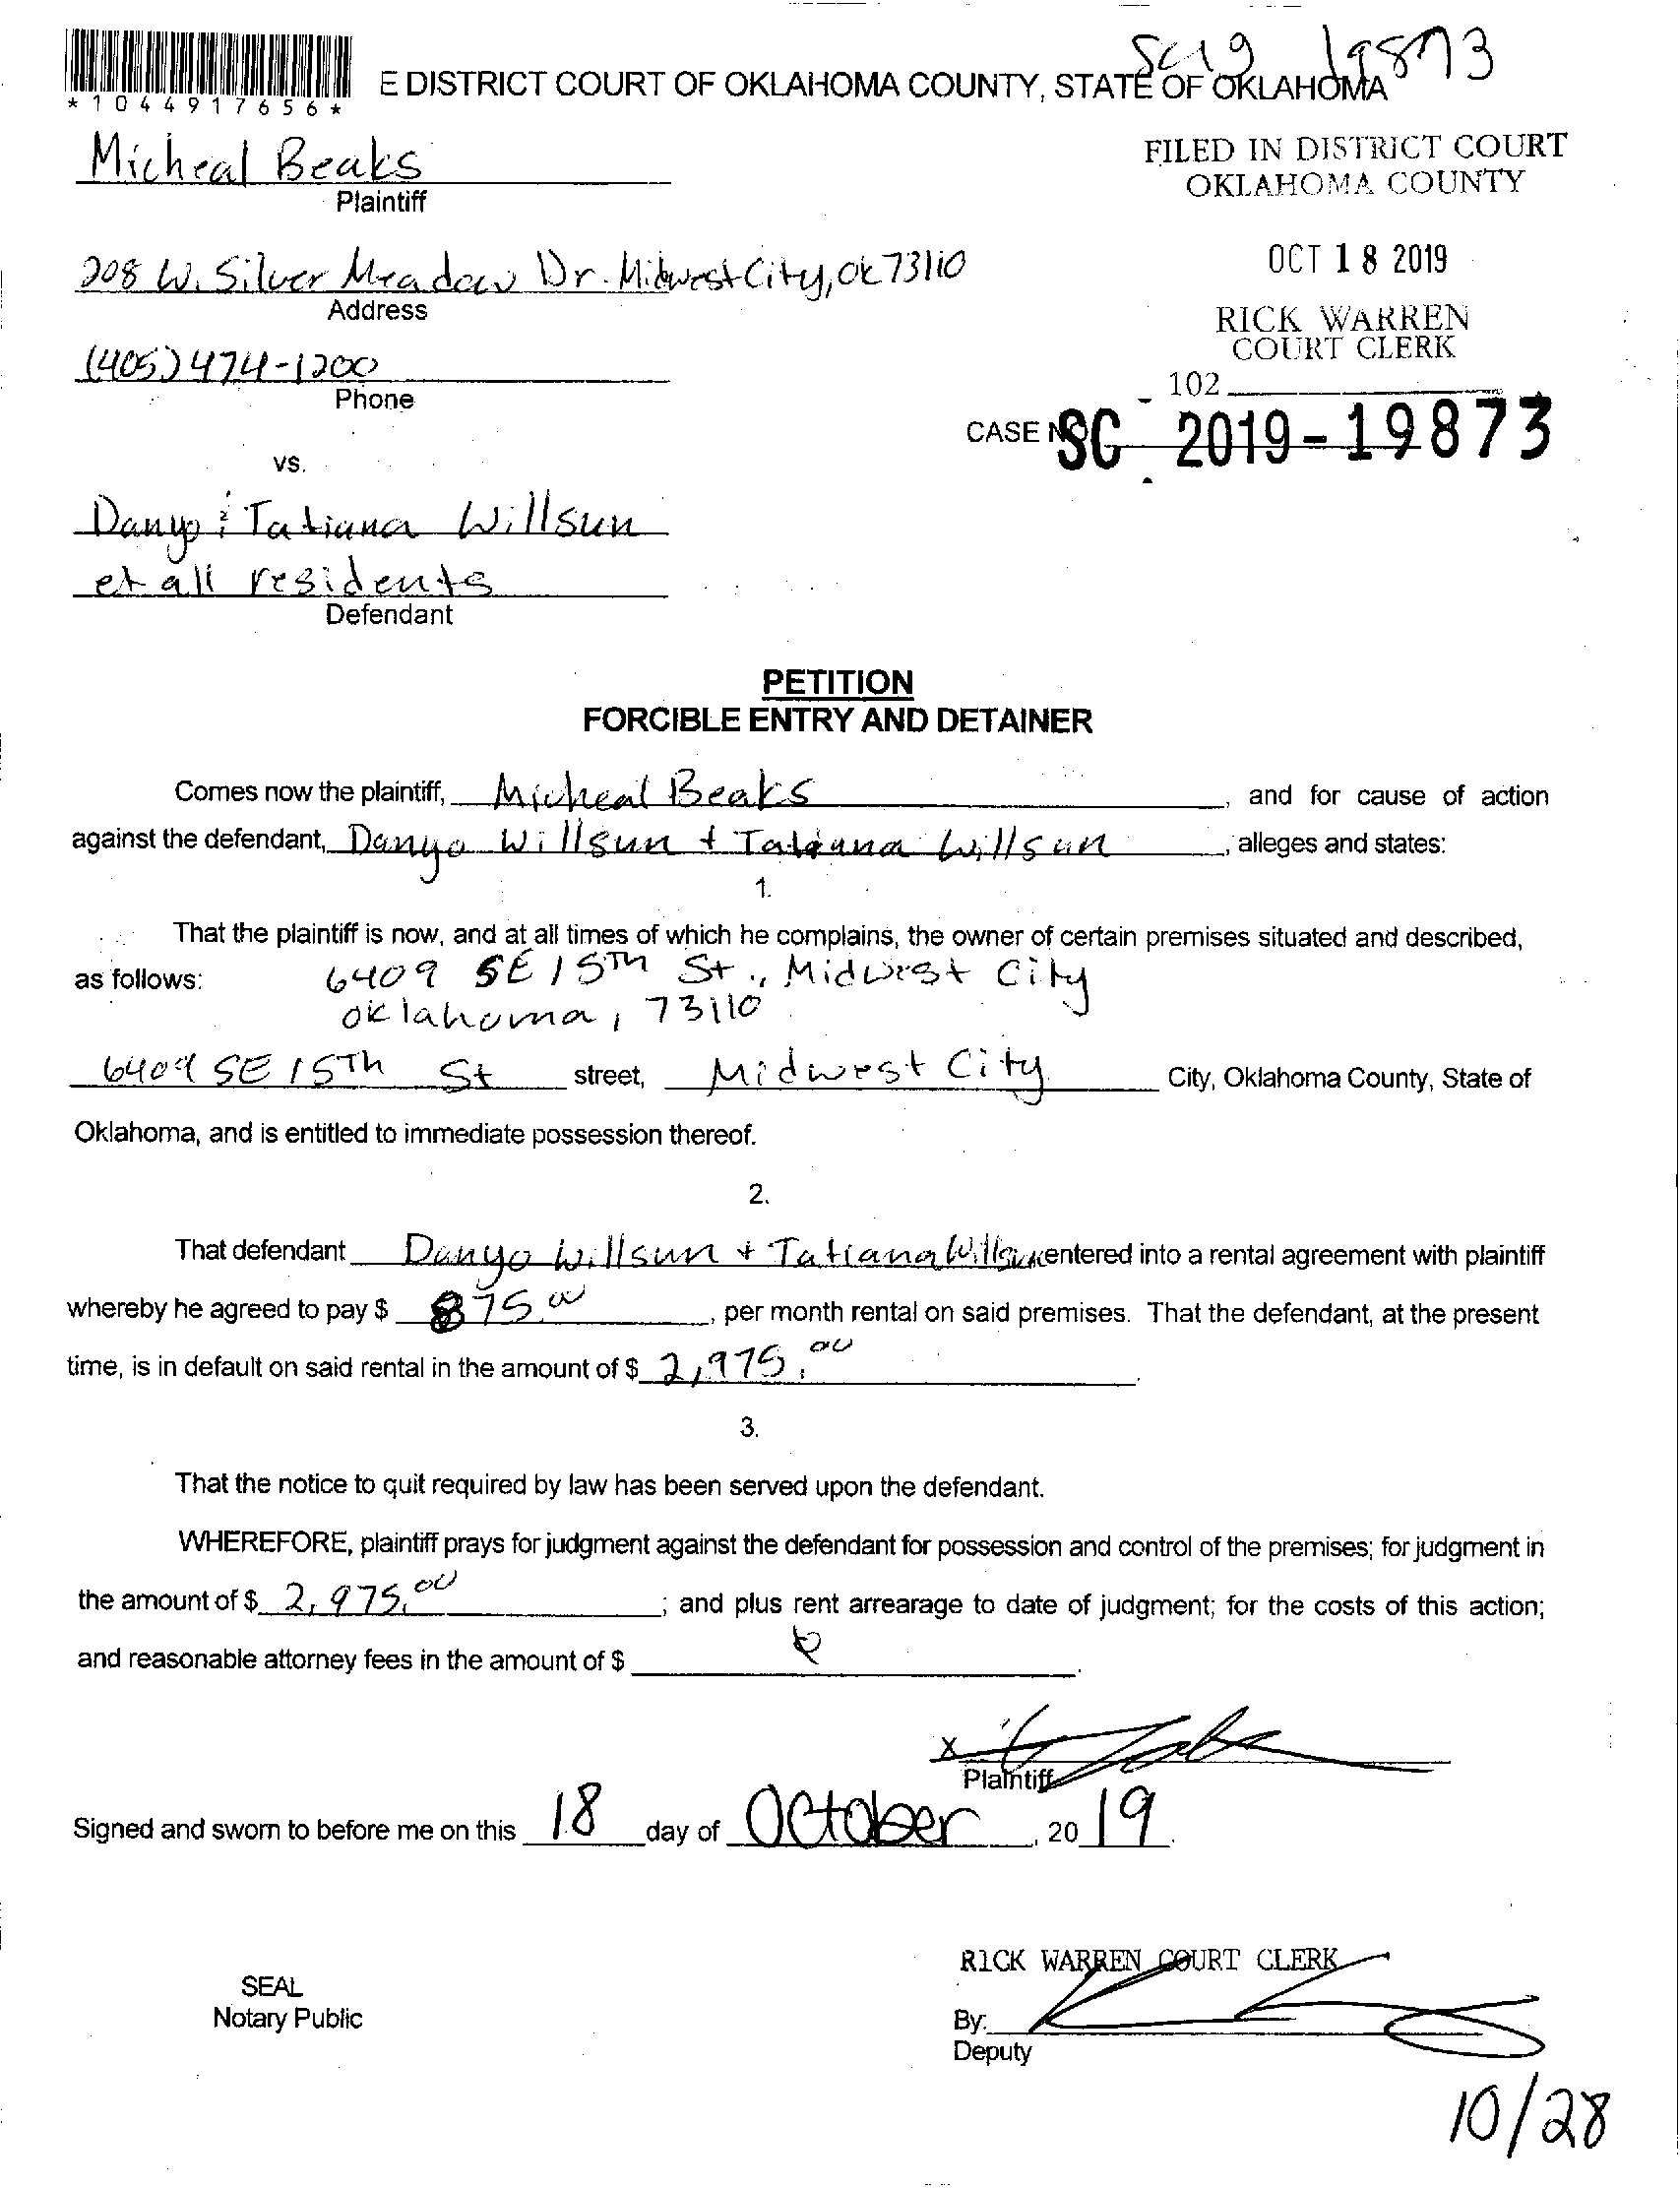 SC19 19873
*1044917656*
E DISTRICT COURT OF OKLAHOMA COUNTY, STATE OF OKLAHOMA
Micheal Beaks
Plaintiff
FILED IN DISTRICT COURT
OKLAHOMA COUNTY
208 W. Silver Meadow Dr. Midwest City, Ok 73110
Address
OCT 18 2019
RICK WARREN
COURT CLERK
(405) 474-1200
Phone
102
CASE NO. SC 2019-19873
vs.
Danyo & Tatiana Willsun
et all residents
Defendant
PETITION
FORCIBLE ENTRY AND DETAINER
Comes now the plaintiff, Micheal Beaks, and for cause of action
against the defendant, Danyo Willsun + Tatiana Willsun, alleges and states:
1.
That the plaintiff is now, and at all times of which he complains, the owner of certain premises situated and described,
as follows: 6409 SE 15TH St., Midwest City
oklahoma, 73110
6409 SE 15Th St street, Midwest City City, Oklahoma County, State of
Oklahoma, and is entitled to immediate possession thereof.
2.
That defendant Danyo Willsun + Tatiana Willsun entered into a rental agreement with plaintiff
whereby he agreed to pay $ 875.00, per month rental on said premises. That the defendant, at the present
time, is in default on said rental in the amount of $ 2,975.00.
3.
That the notice to quit required by law has been served upon the defendant.
WHEREFORE, plaintiff prays for judgment against the defendant for possession and control of the premises; for judgment in
the amount of $ 2,975.00; and plus rent arrearage to date of judgment; for the costs of this action;
and reasonable attorney fees in the amount of $
X
Plaintiff
Signed and sworn to before me on this 18 day of October, 20 19.
RICK WARREN COURT CLERK
SEAL
Notary Public
By:
Deputy
10/28